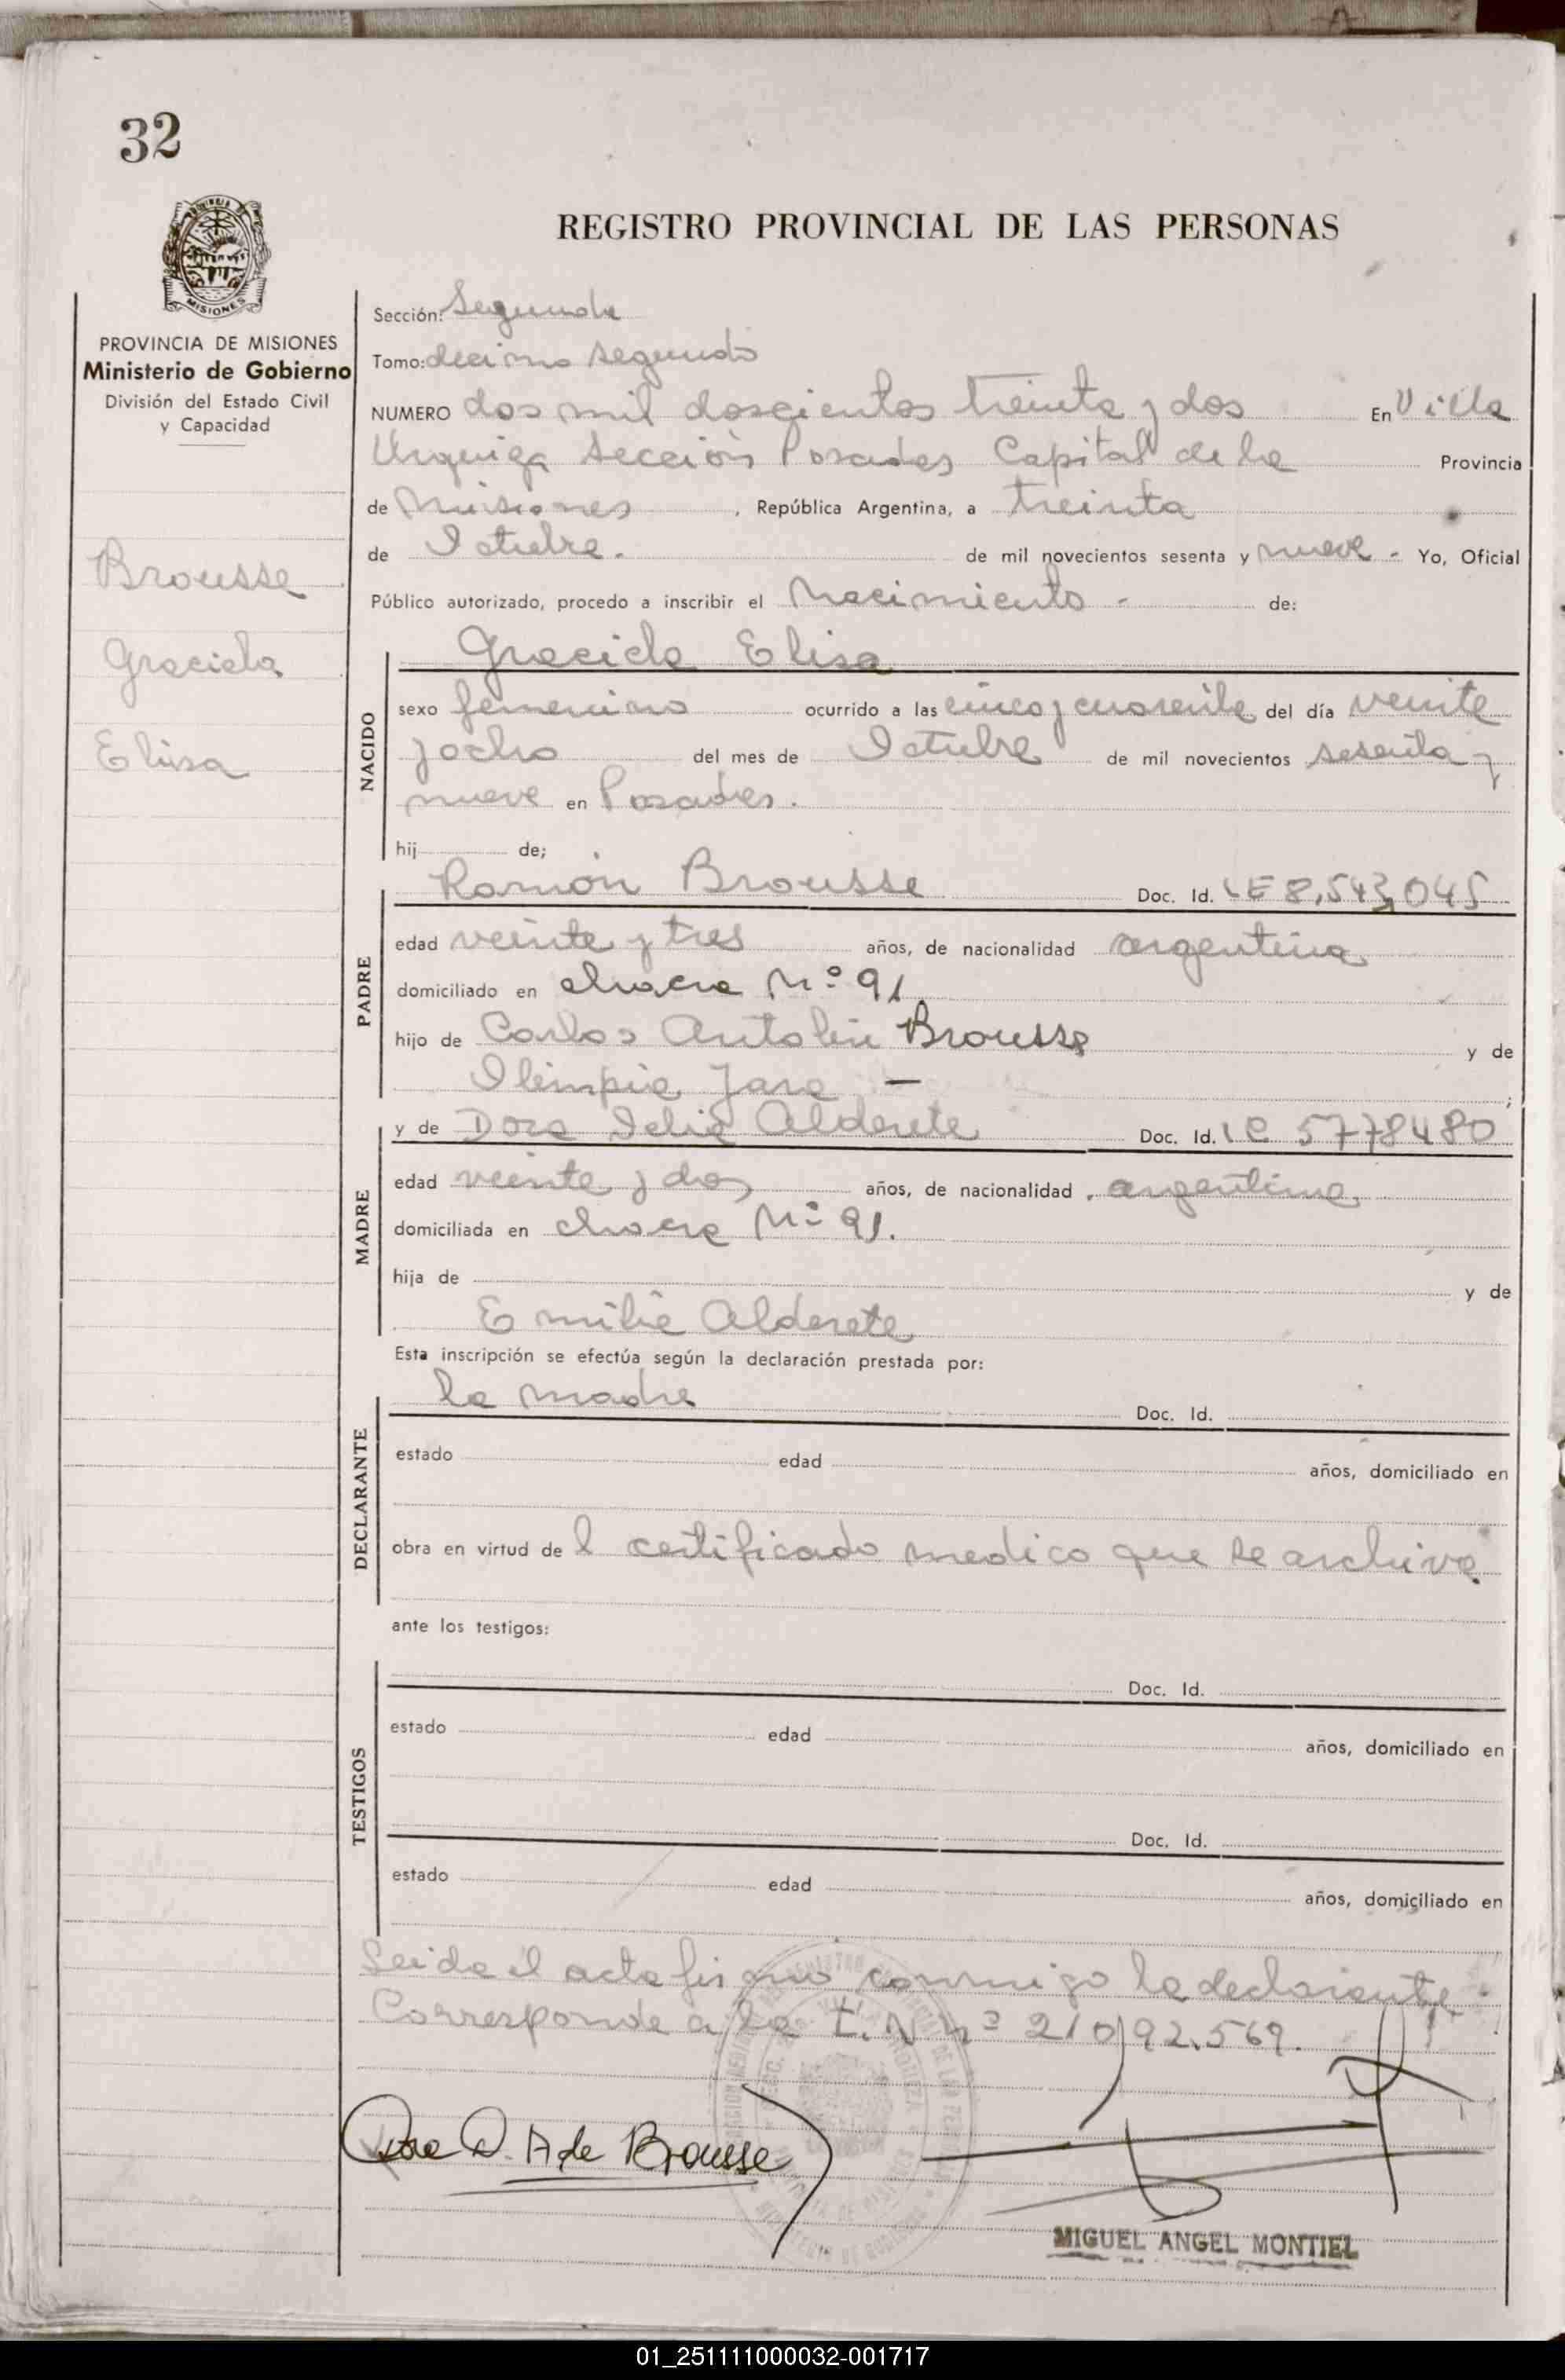 32
REGISTRO PROVINCIAL DE LAS PERSONAS
MISIONES
PROVINCIA DE MISIONES
Ministerio de Gobierno
División del Estado Civil
y Capacidad
Brousse
Graciela
Elisa
Sección: Segunda
Tomo: decimo segundo
NUMERO dos mil doscientos treinta y dos En Villa
Urquiza Sección Posadas Capital de la Provincia
de Misiones , República Argentina, a treinta
de Octubre. de mil novecientos sesenta y nueve - Yo, Oficial
Público autorizado, procedo a inscribir el Nacimiento - de:
NACIDO
Graciela Elisa
sexo femenino ocurrido a las cinco y cuarenta del día veinte
y ocho del mes de Octubre de mil novecientos sesenta y
nueve en Posadas.
hij de;
PADRE
Ramón Brousse Doc. Id. LE 8,543,045
edad veinte y tres años, de nacionalidad argentina
domiciliado en chacra Nº 91
hijo de Carlos Antolin Brousse y de
Olimpia Jara - ;
MADRE
y de Dora Delia Alderete Doc. Id. LC 5778480
edad veinte y dos años, de nacionalidad argentina
domiciliada en chacra Nº 91.
hija de y de
Emilia Alderete
Esta inscripción se efectúa según la declaración prestada por:
DECLARANTE
la madre Doc. Id.
estado edad años, domiciliado en
obra en virtud de l certificado medico que se archiva
ante los testigos:
TESTIGOS
Doc. Id.
estado edad años, domiciliado en
Doc. Id.
estado edad años, domiciliado en
Leida el acta firma conmigo la declarante.
Corresponde a la L.N nº 21092.569.
D. A de Brousse
MIGUEL ANGEL MONTIEL
01_251111000032-001717